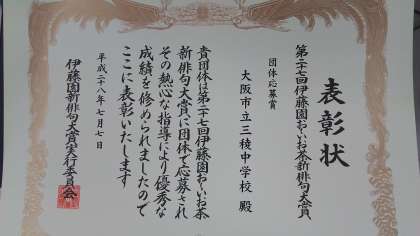 表彰状
第二十七回伊藤園お〜いお茶新俳句大賞
団体応募賞
大阪市立三稜中学校 殿
貴団体は第二十七回伊藤園お〜いお茶
新俳句大賞に団体で応募され
その熱心な指導により優秀な
成績を修められましたので
ここに表彰いたします
平成二十八年七月七日
伊藤園新俳句大賞実行委員会